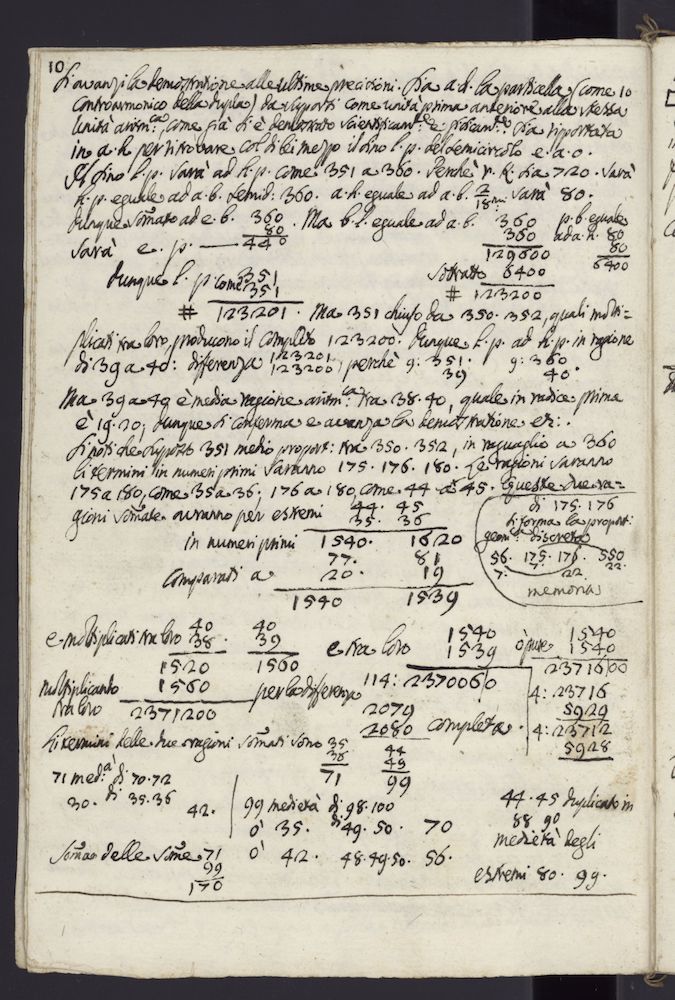 10
Si avanzi la demostrazione alle ultime precisioni. Sia a. d. la particella (come 10
contrarmonico della dupla) da supporsi come unità prima anteriore alla stessa
unità aritm:ca, come già si è demostrato scientificam:te e Sia riportata
in a. h. per ritrovare col di lei mezo il sino l. p. del semicircolo e. a. o.
Il sino l. p. sarà ad h. p. come 351 a 360. Perchè n. h. sia 720. sarà
h. p. eguale ad a. b. semid: 360. a. h. eguale ad a. b. 2/18 sarà 80.
dunque somato ad e. b. 360 . Ma b. l. eguale ad a. b. 360 p. b. eguale
80 360 ad a. h. 80
sarà e. p. — 440 129600 80
6400
dunque l. p. come 351 sottratto 6400
351 # 123200
# 123201 . Ma 351 chiuso da 350. 352, quali molti=
plicati tra loro, producono il completo 123200. dunque l. p. ad h. p. in ragione
di 39 a 40: differenza 123201 perchè 9: 351. 9: 360
123200 39 40.
Ma 39 a 40 è media ragione aritm:ca tra 38. 40, quale in radice prima
è 19. 20; dunque si conferma e avanza la demostratione
Si noti che supposto 351 medio proport: tra 350. 352, in raguaglio a 360
li termini in numeri primi saranno 175. 176. 180. Le ragioni saranno
175 a 180, come 35 a 36; 176 a 180, come 44 a 45. Queste due ra=
gioni somate avranno per estremi 44. 45
35. 36
di 175. 176
si forma la proport:
geom:ca discreta
56. 175. 176. 550
7. 7. 22. 22.
memoria
in numeri primi 1540. 1620
77. 81
comparati a 20. 19
1540 1539
e moltiplicati tra loro 40 40
38. 39
1520 1560
e tra loro 1540
1539
ò pure 1540
1540
2371600
moltiplicanto 1560 per la differenza 114: 2370060
tra loro 2371200 2079
2080 completa.
4: 23716
5929
4: 23712
5928
Li termini delle due ragioni somati sono 35 44
36 45
71 99
71 med:a di 70. 72
30. di 35. 36 42.
99 medietà di 98. 100
ò 35. di 49. 50. 70
44. 45 duplicato in
88 90
medietà degli
estremi 80. 99.
Soma delle some 71 ò 42. 48. 49. 50. 56.
99
170